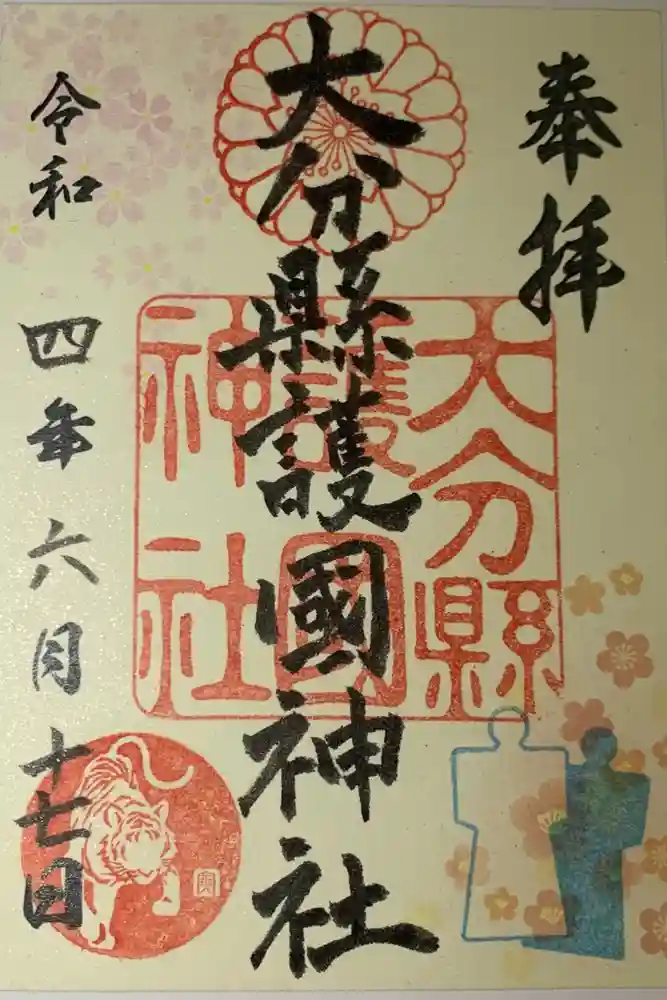 奉拝
大分縣護國神社
大分縣護國神社
令和四年六月十七日
寅